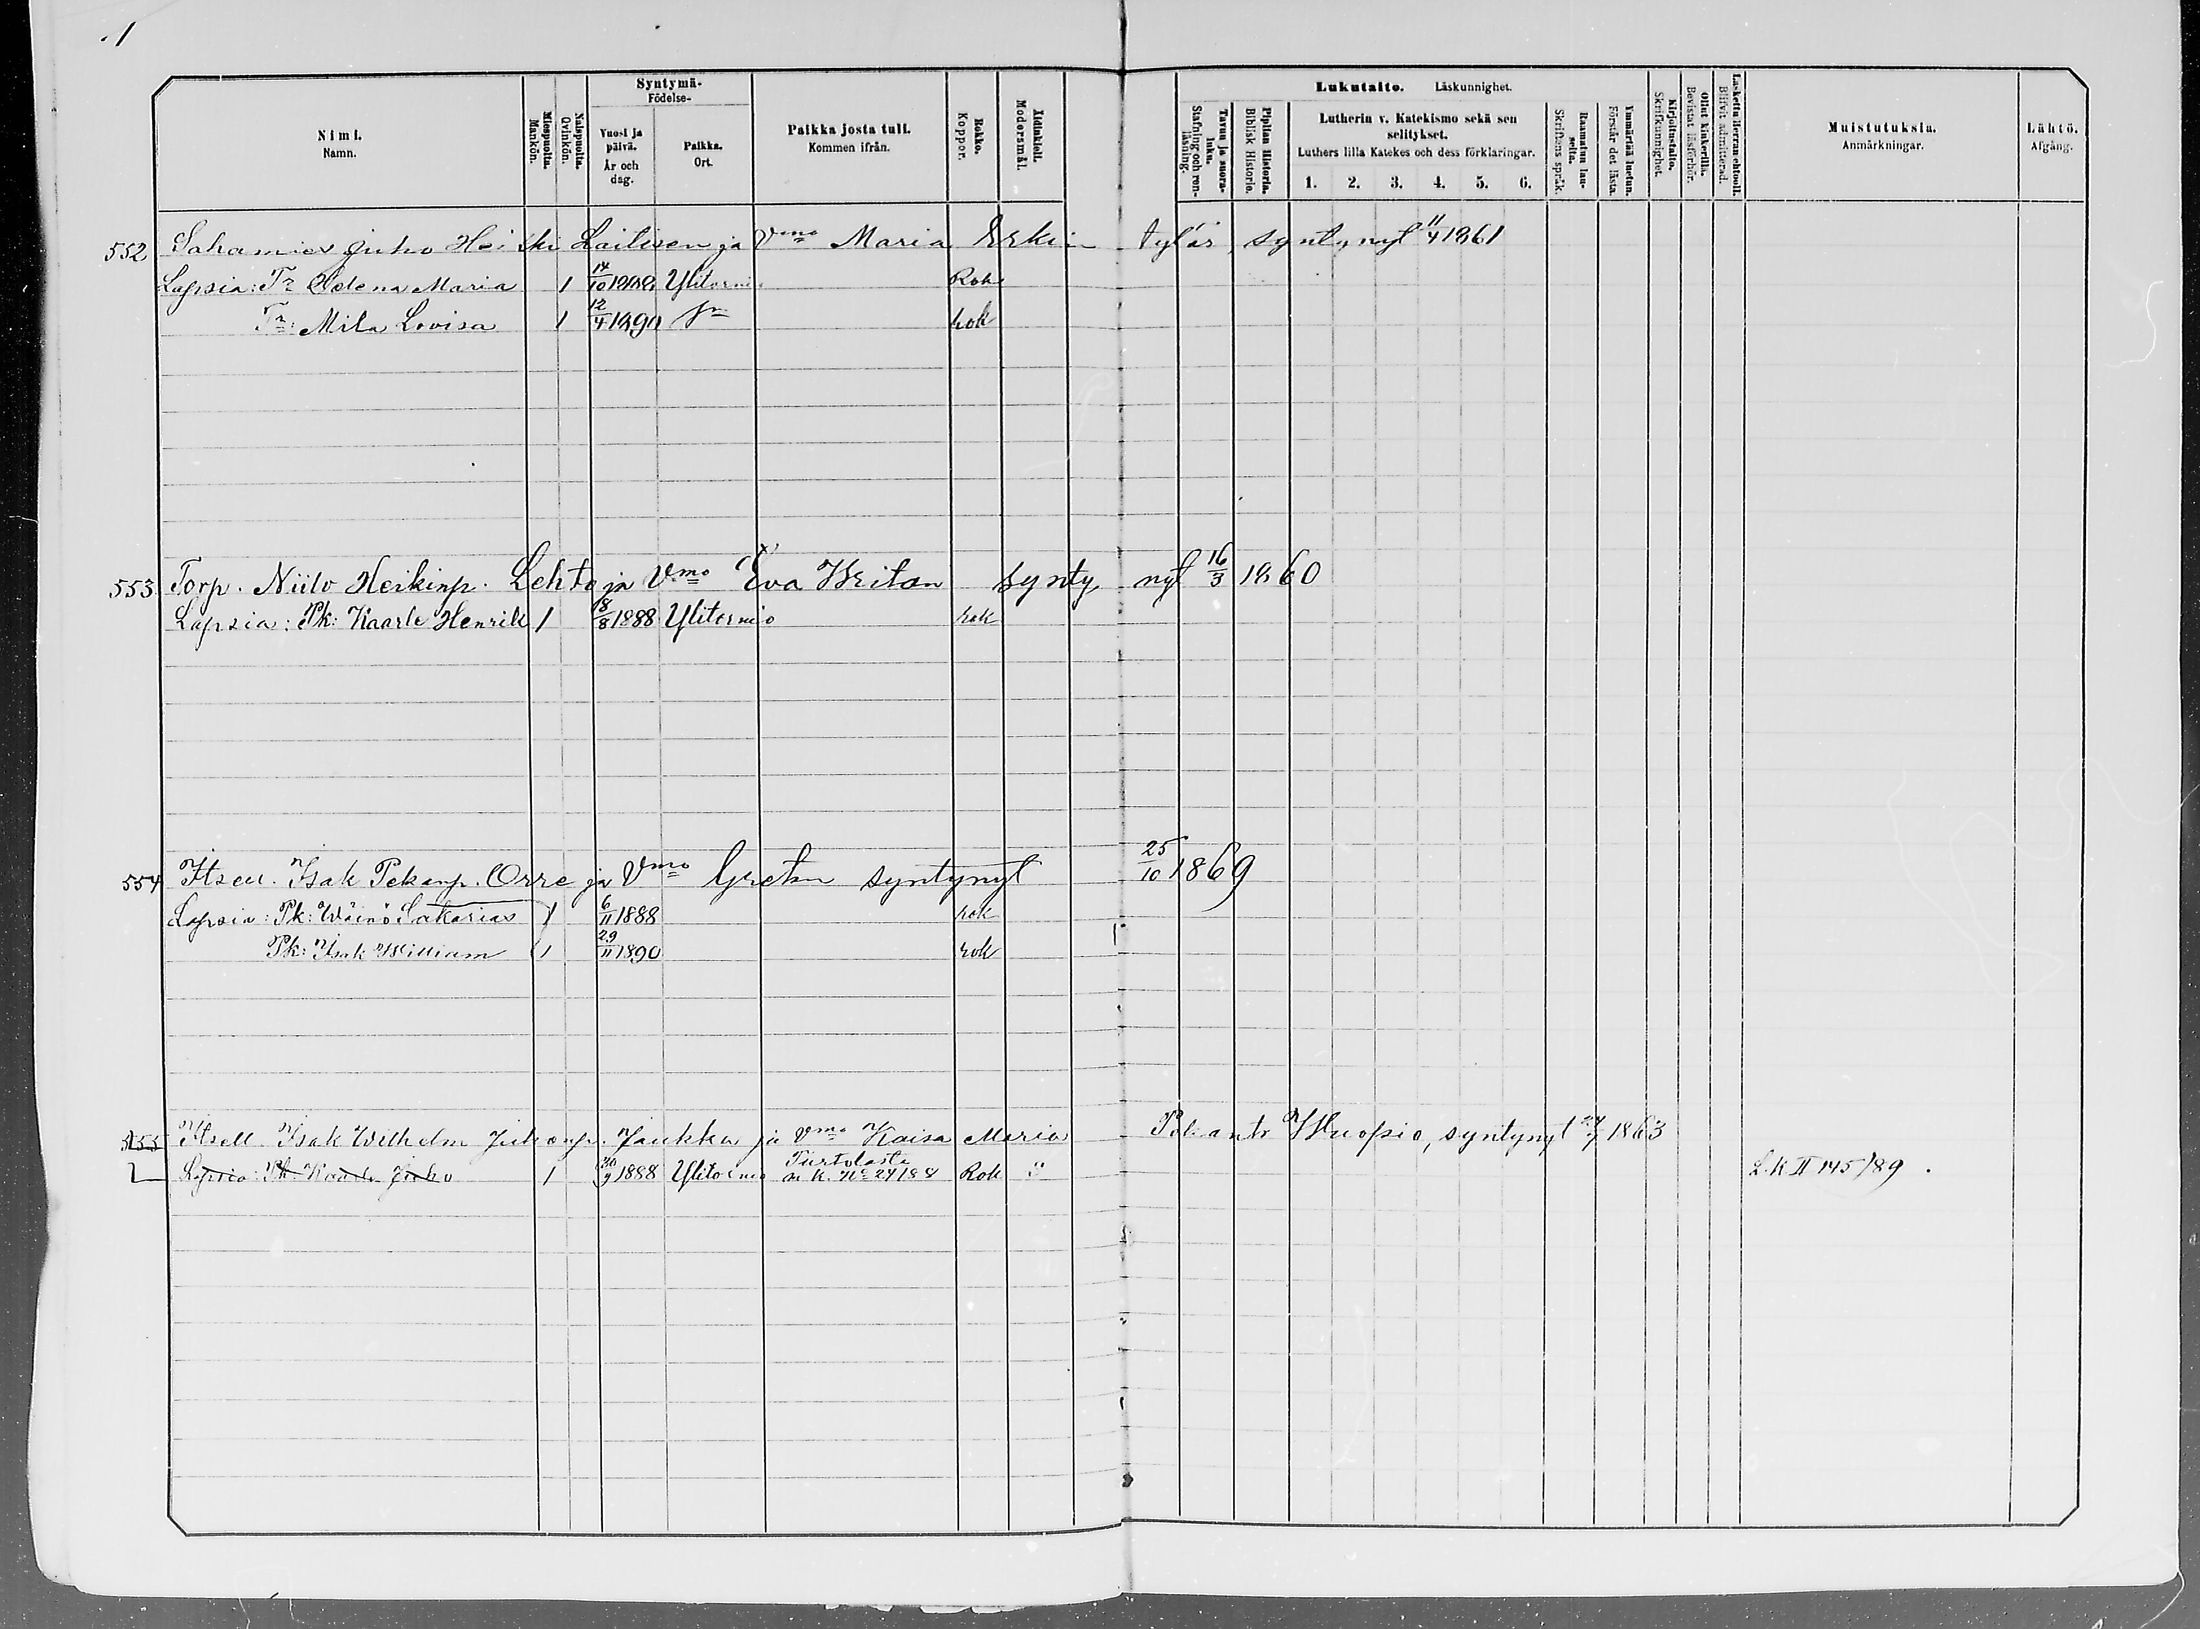 1
Nimi.
Namn.
Miespuolta.
Mankön.
Naispuolta.
Qvinkön.
Syntymä-
Födelse-
Vuosi ja
päivä.
År och
dag.
Paikka.
Ort.
Paikka josta tuli.
Kommen ifrån.
Rokko.
Koppor.
Äidinkieli.
Modersmål.
Lukutaito. Läskunnighet.
Tavuu ja suora-
luku.
Stafning och ren-
läsning.
Piplian Historia.
Biblisk Historie.
Lutherin v. Katekismo sekä sen
selitykset.
Luthers lilla Katekes och dess förklaringar.
1. 2. 3. 4. 5. 6.
Raamatun lau-
seita.
Skriftens språk.
Ymmärtää luetun.
Förstår det lästa.
Kirjoitustaito.
Skrifkunnighet.
Ollut kinkerillä.
Bevistat läsförhör.
Laskettu Herran ehtool.
Blifvit admitterad.
Muistutuksia.
Anmärkningar.
Lähtö.
Afgång.
552 Sahamies Juho Heikki Lailisen ja Vmo Maria Erkin tytär, syntynyt 11/4 1861
Lapsia: Tr Selena Maria 1 14/10 1888 Ylitornio Rok
Tr: Mila Lovisa 1 12/4 1890 rok
553 Torp. Niilo Heikinp. Lehto ja Vmo Eva Kritan syntynyt 16/3 1860
Lapsia: Pk: Kaarle Henrik 1 18/8 1888 Ylitornio rok
554 Itsell. Isak Pekanp. Orre ja Vmo Gretan syntynyt 25/10 1869
Lapsia: Pk: Wäinö Sakarias 1 6/11 1888 rok
Pk: Isak William 1 29/11 1890 rok
555 Itsell. Isak Wilhelm Juhonp. Jaukka ja Vmo Kaisa Maria Huopio, syntynyt 24/7 1863
Lapsia: Pk. Kaarlo Juho 1 30/9 1888 Ylitornio Turtolasta m. k. No 24/88 Rok L.K II 145/89.